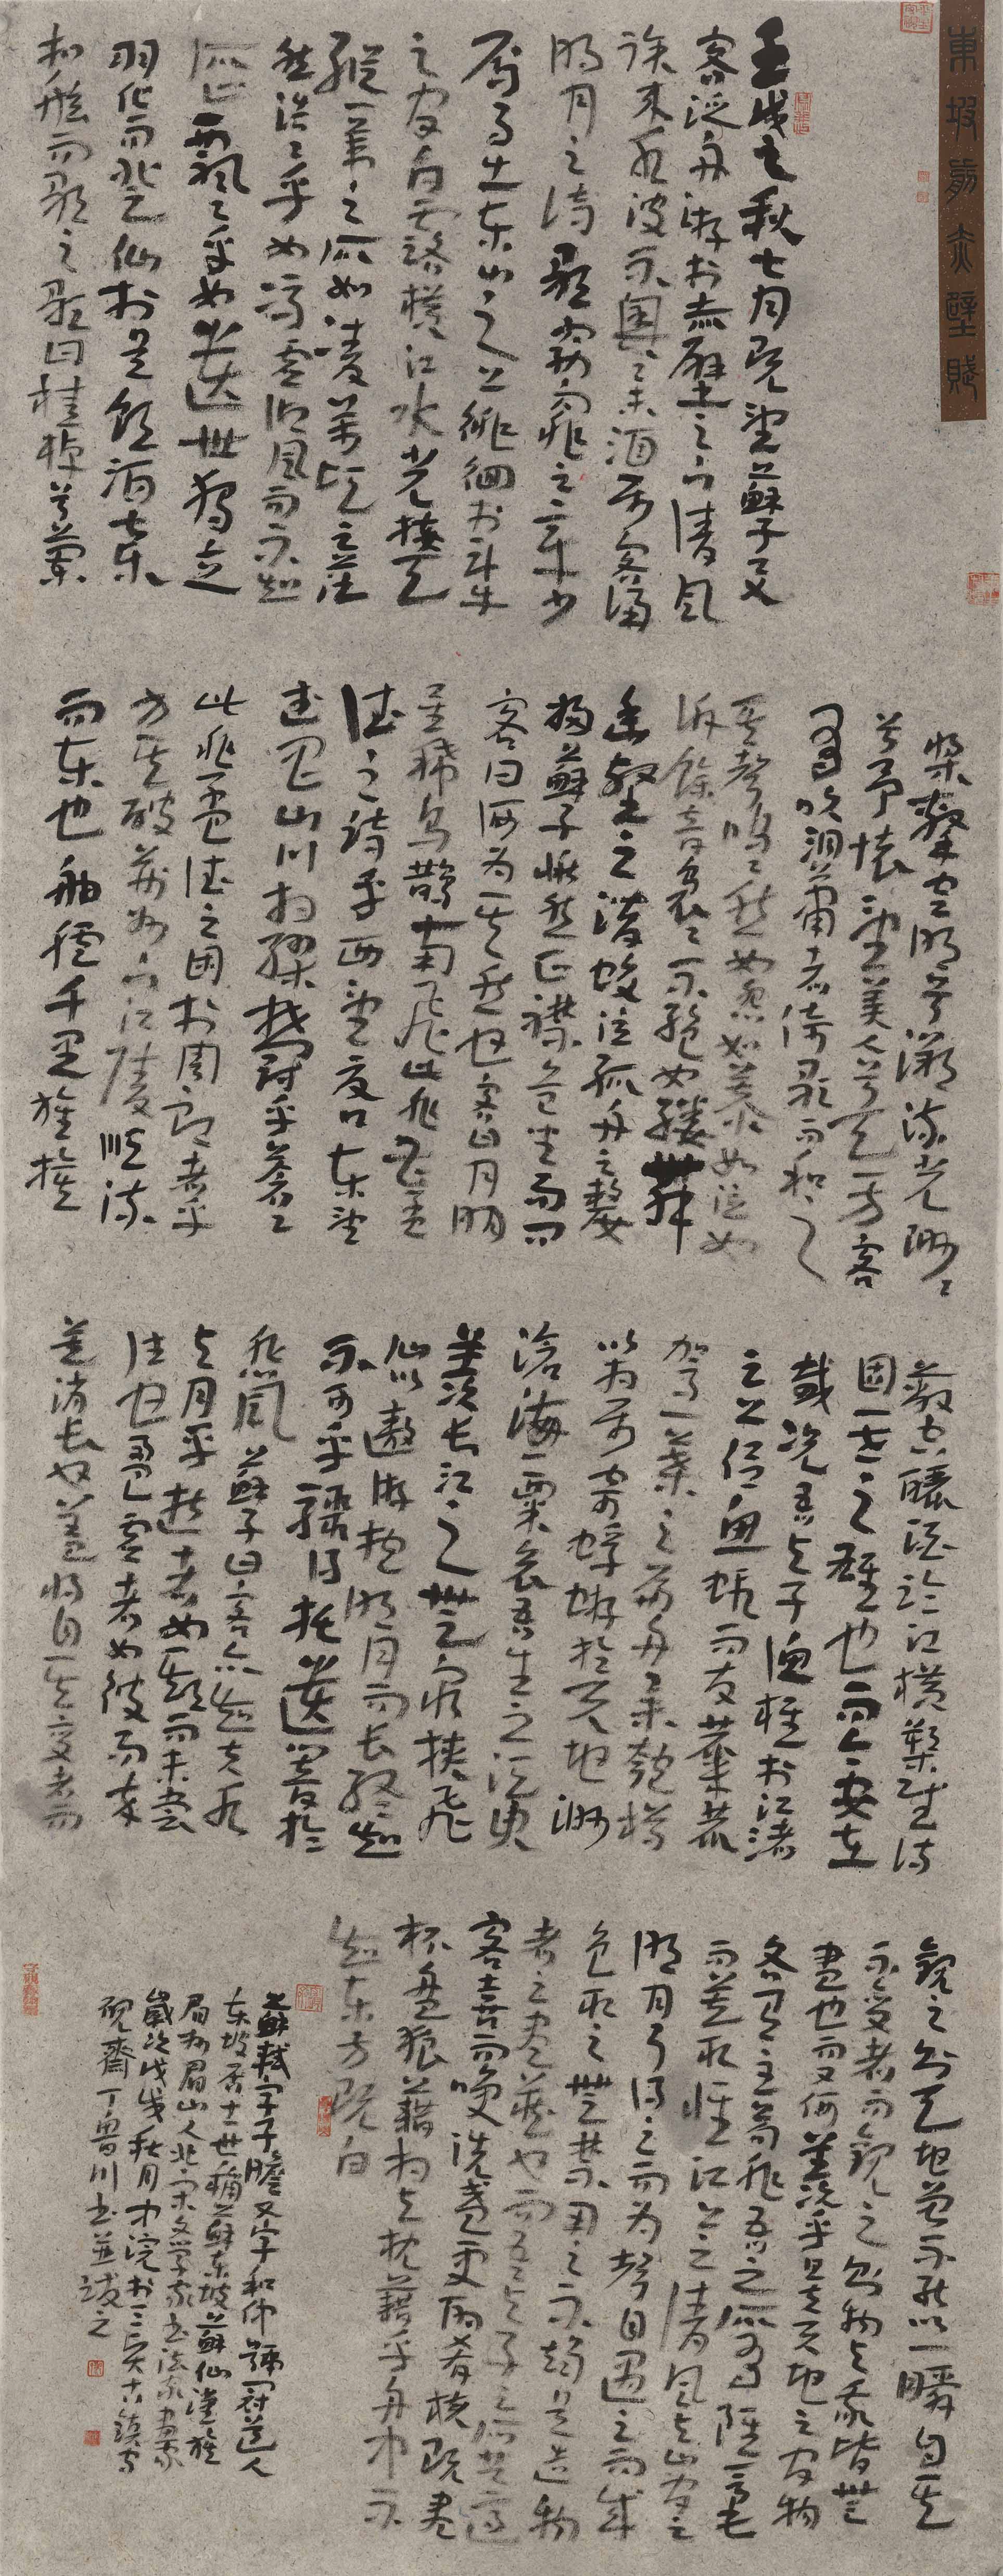 東坡前赤壁賦
壬戌之秋七月既望蘇子與
客泛舟游於赤壁之下清風
徐來水波不興舉酒屬客誦
明月之詩歌窈窕之章少
焉月出東山之上徘徊於斗牛
之間白露橫江水光接天
縱一葦之所如凌萬頃之茫
然浩浩乎如馮虛御風而不知
所止飄飄乎如遺世獨立
羽化而登仙於是飲酒甚樂
扣舷而歌之歌曰桂棹兮蘭
槳擊空明兮溯流光渺渺
兮予懷望美人兮天一方客
有吹洞簫者倚歌而和之
其聲嗚嗚然如怨如慕如泣如
訴餘音裊裊不絕如縷舞
幽壑之潛蛟泣孤舟之嫠
婦蘇子愀然正襟危坐而問
客曰何為其然也客曰月明
星稀烏鵲南飛此非孟
德之詩乎西望夏口東望
武昌山川相繆鬱乎蒼蒼
此非孟德之困於周郎者乎
方其破荊州下江陵順流
而東也舳艫千里旌旗
蔽空釃酒臨江橫槊賦詩
固一世之雄也而今安在
哉況吾與子漁樵於江渚
之上侶魚蝦而友麋鹿
駕一葉之扁舟舉匏樽
以相屬寄蜉蝣於天地渺
滄海一粟哀吾生之須臾
羨長江之無窮挾飛
仙以遨游抱明月而長終知
不可乎驟得托遺響於
悲風蘇子曰客亦知夫水
與月乎逝者如斯而未嘗
往也盈虛者如彼而卒
莫消長也蓋將自其變者而
觀之則天地曾不能以一瞬自其
不變者而觀之則物與我皆無
盡也而又何羨乎且夫天地之間物
各有主苟非吾之所有雖一毫
而莫取惟江上之清風與山間之
明月耳得之而為聲目遇之而成
色取之無禁用之不竭是造物
者之無盡藏也而吾與子之所共適
客喜而笑洗盞更酌肴核既盡
杯盤狼藉相與枕藉乎舟中不
知東方既白
蘇軾字子瞻又字和仲號冠道人
東坡居士世稱蘇東坡蘇仙漢族
眉州眉山人北宋文學家書法家畫家
歲次戊戌秋月中浣於三古鎮
硯齋丁魯川書並跋之